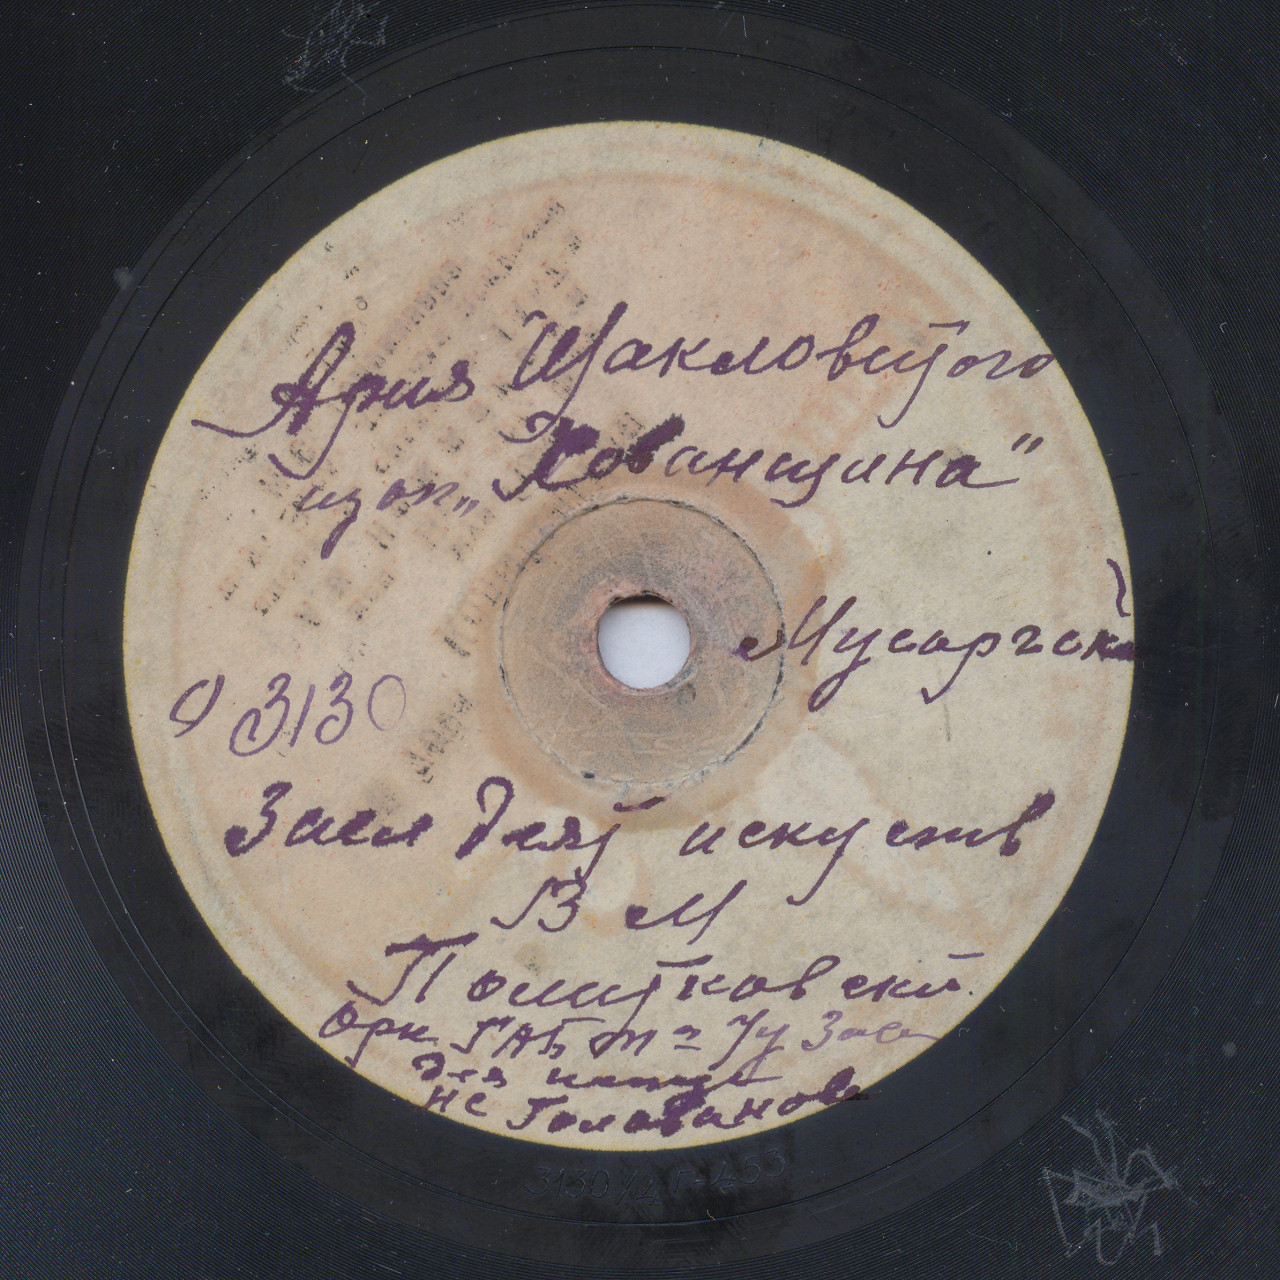 Ария Шакловитого
из оп „Хованщина“
Мусоргск
0 3130
Засл деят искуств
В М
Политковский
Орк ГАБТ п/у Засл
дея искус
НС Голованов
3130